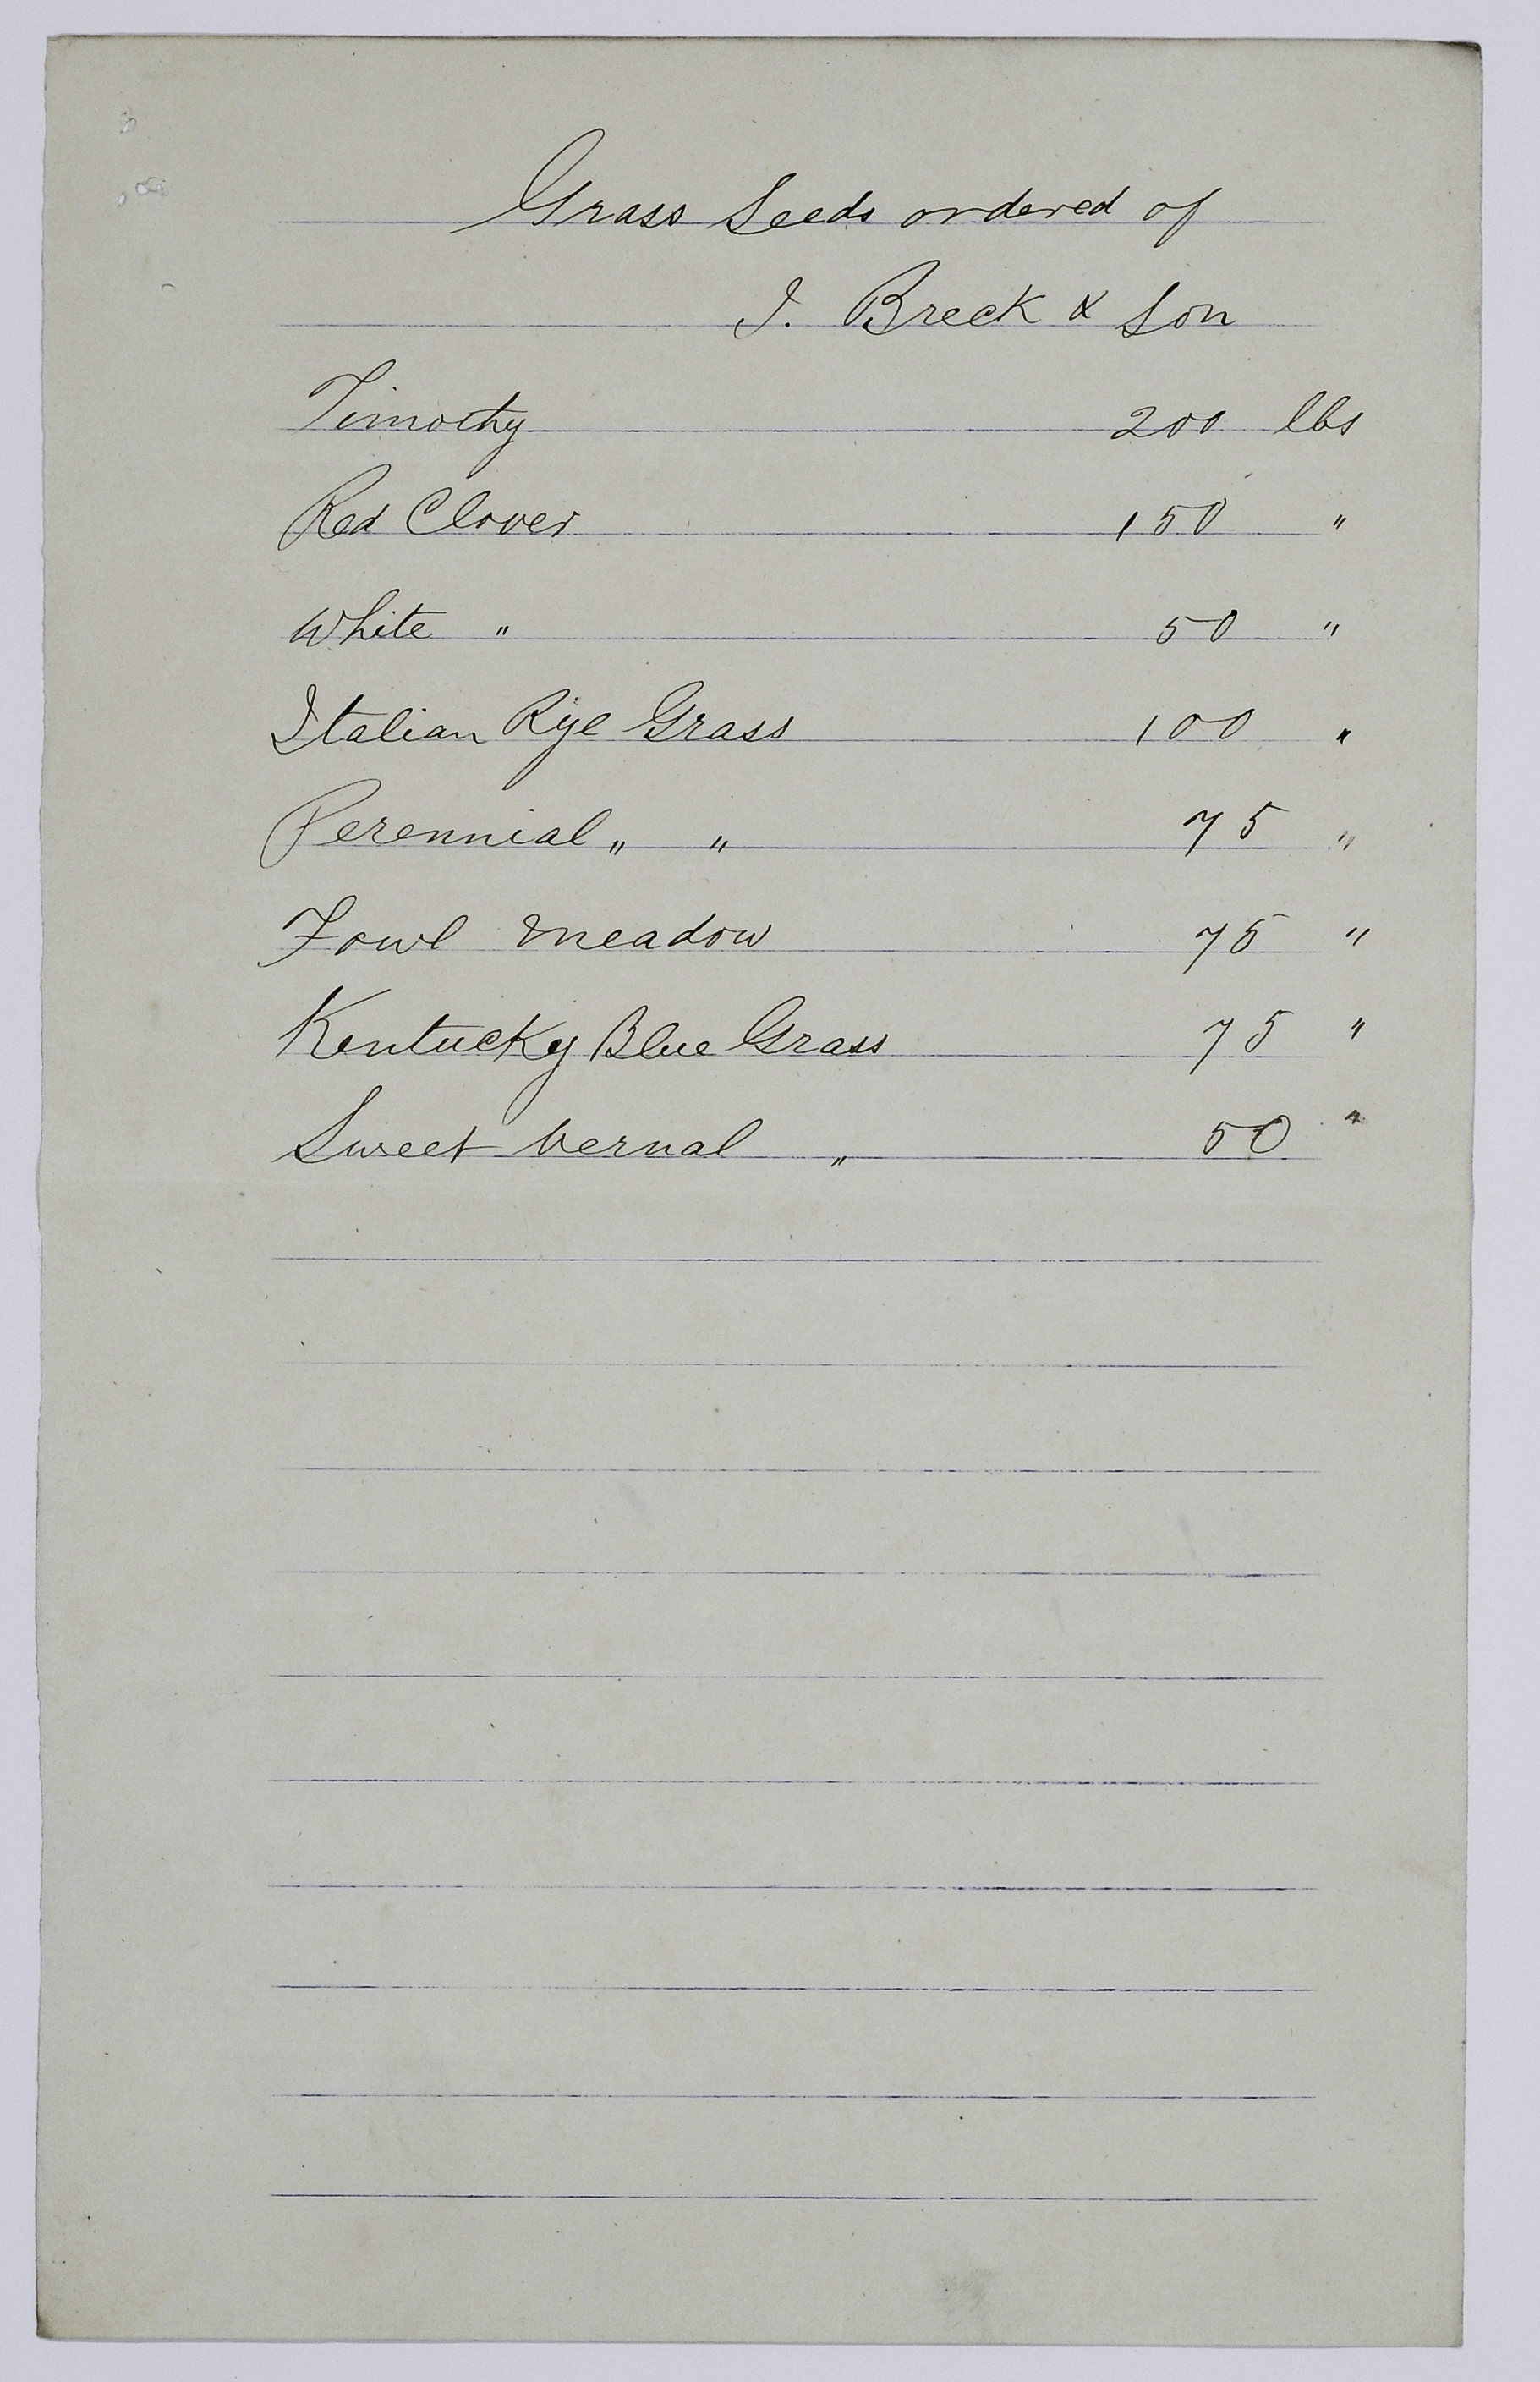 Grass Seeds ordered of
J. Breck & Son
Timothy 200 lbs
Red Clover 150 "
White " 50 "
Italian Rye Grass 100 "
Perennial " " 75 "
Fowl meadow 75 "
Kentucky Blue Grass 75 "
Sweet vernal " 50 "